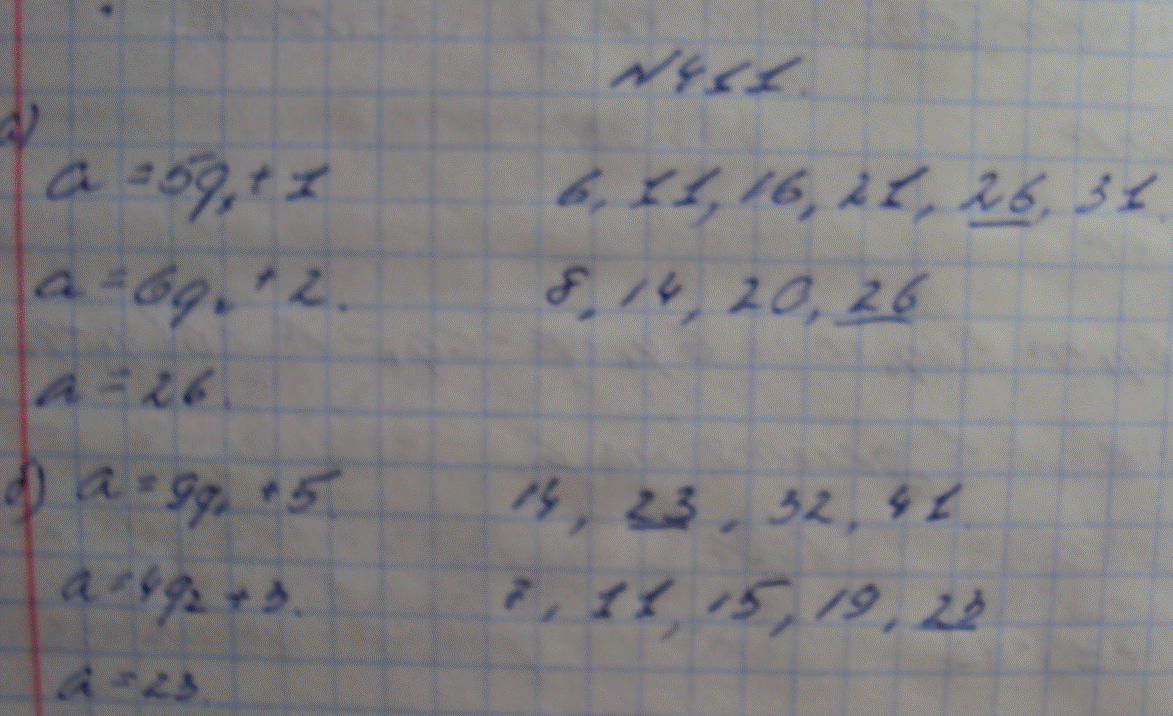 N411.
а)
a = 5q₁ + 1 6, 11, 16, 21, 26, 31.
a = 6q₂ + 2. 8, 14, 20, 26
a = 26.
б) a = 9q₁ + 5. 14, 23, 32, 41.
a = 4q₂ + 3. 7, 11, 15, 19, 23
a = 23.